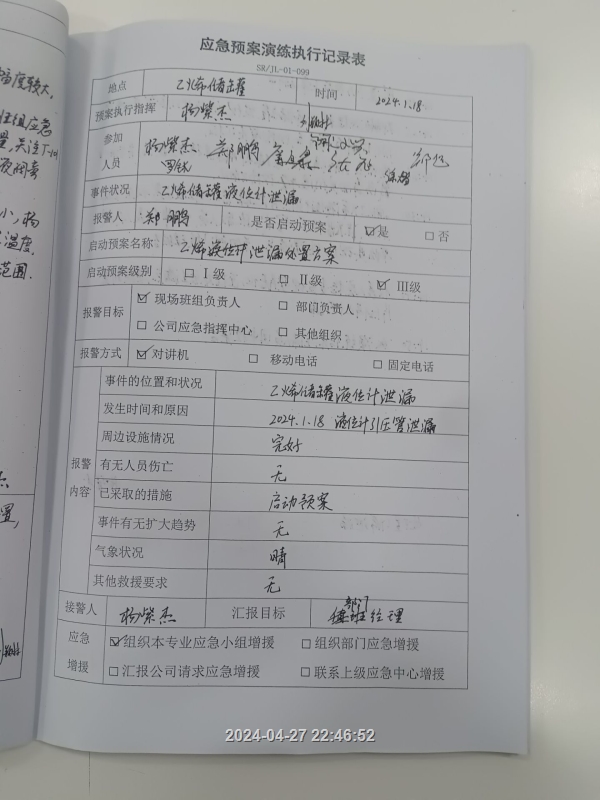 应急预案演练执行记录表
SR/JL-01-099
地点 乙烯储罐 时间 2024.1.18
预案执行指挥 杨紫杰
参加人员 杨紫杰 郑鹏
事件状况 乙烯储罐液位计泄漏
报警人 郑鹏 是否启动预案 ☑是 □否
启动预案名称 乙烯液位计泄漏处置方案
启动预案级别 □ Ⅰ级 □ Ⅱ级 ☑ Ⅲ级
报警目标 ☑ 现场班组负责人 □ 部门负责人
□ 公司应急指挥中心 □ 其他组织
报警方式 ☑ 对讲机 □ 移动电话 □ 固定电话
报警内容
事件的位置和状况 乙烯储罐液位计泄漏
发生时间和原因 2024.1.18 液位计引压管泄漏
周边设施情况 完好
有无人员伤亡 无
已采取的措施 启动预案
事件有无扩大趋势 无
气象状况 晴
其他救援要求 无
接警人 杨紫杰 汇报目标 部门经理
应急增援 ☑组织本专业应急小组增援 □组织部门应急增援
□汇报公司请求应急增援 □联系上级应急中心增援
幅度较大,
班组应急
温度.
范围.
2024-04-27 22:46:52